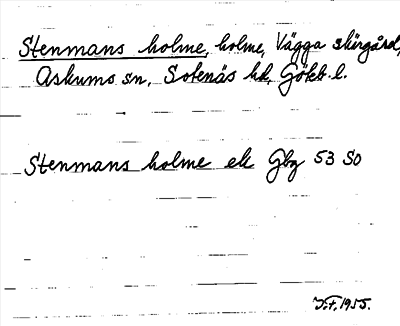 Stenmans holme, holme, Vägga skärgård,
Askums sn, Sotenäs hd, Göteb. l.
Stenmans holme ek Gbg 53 SO
1955.